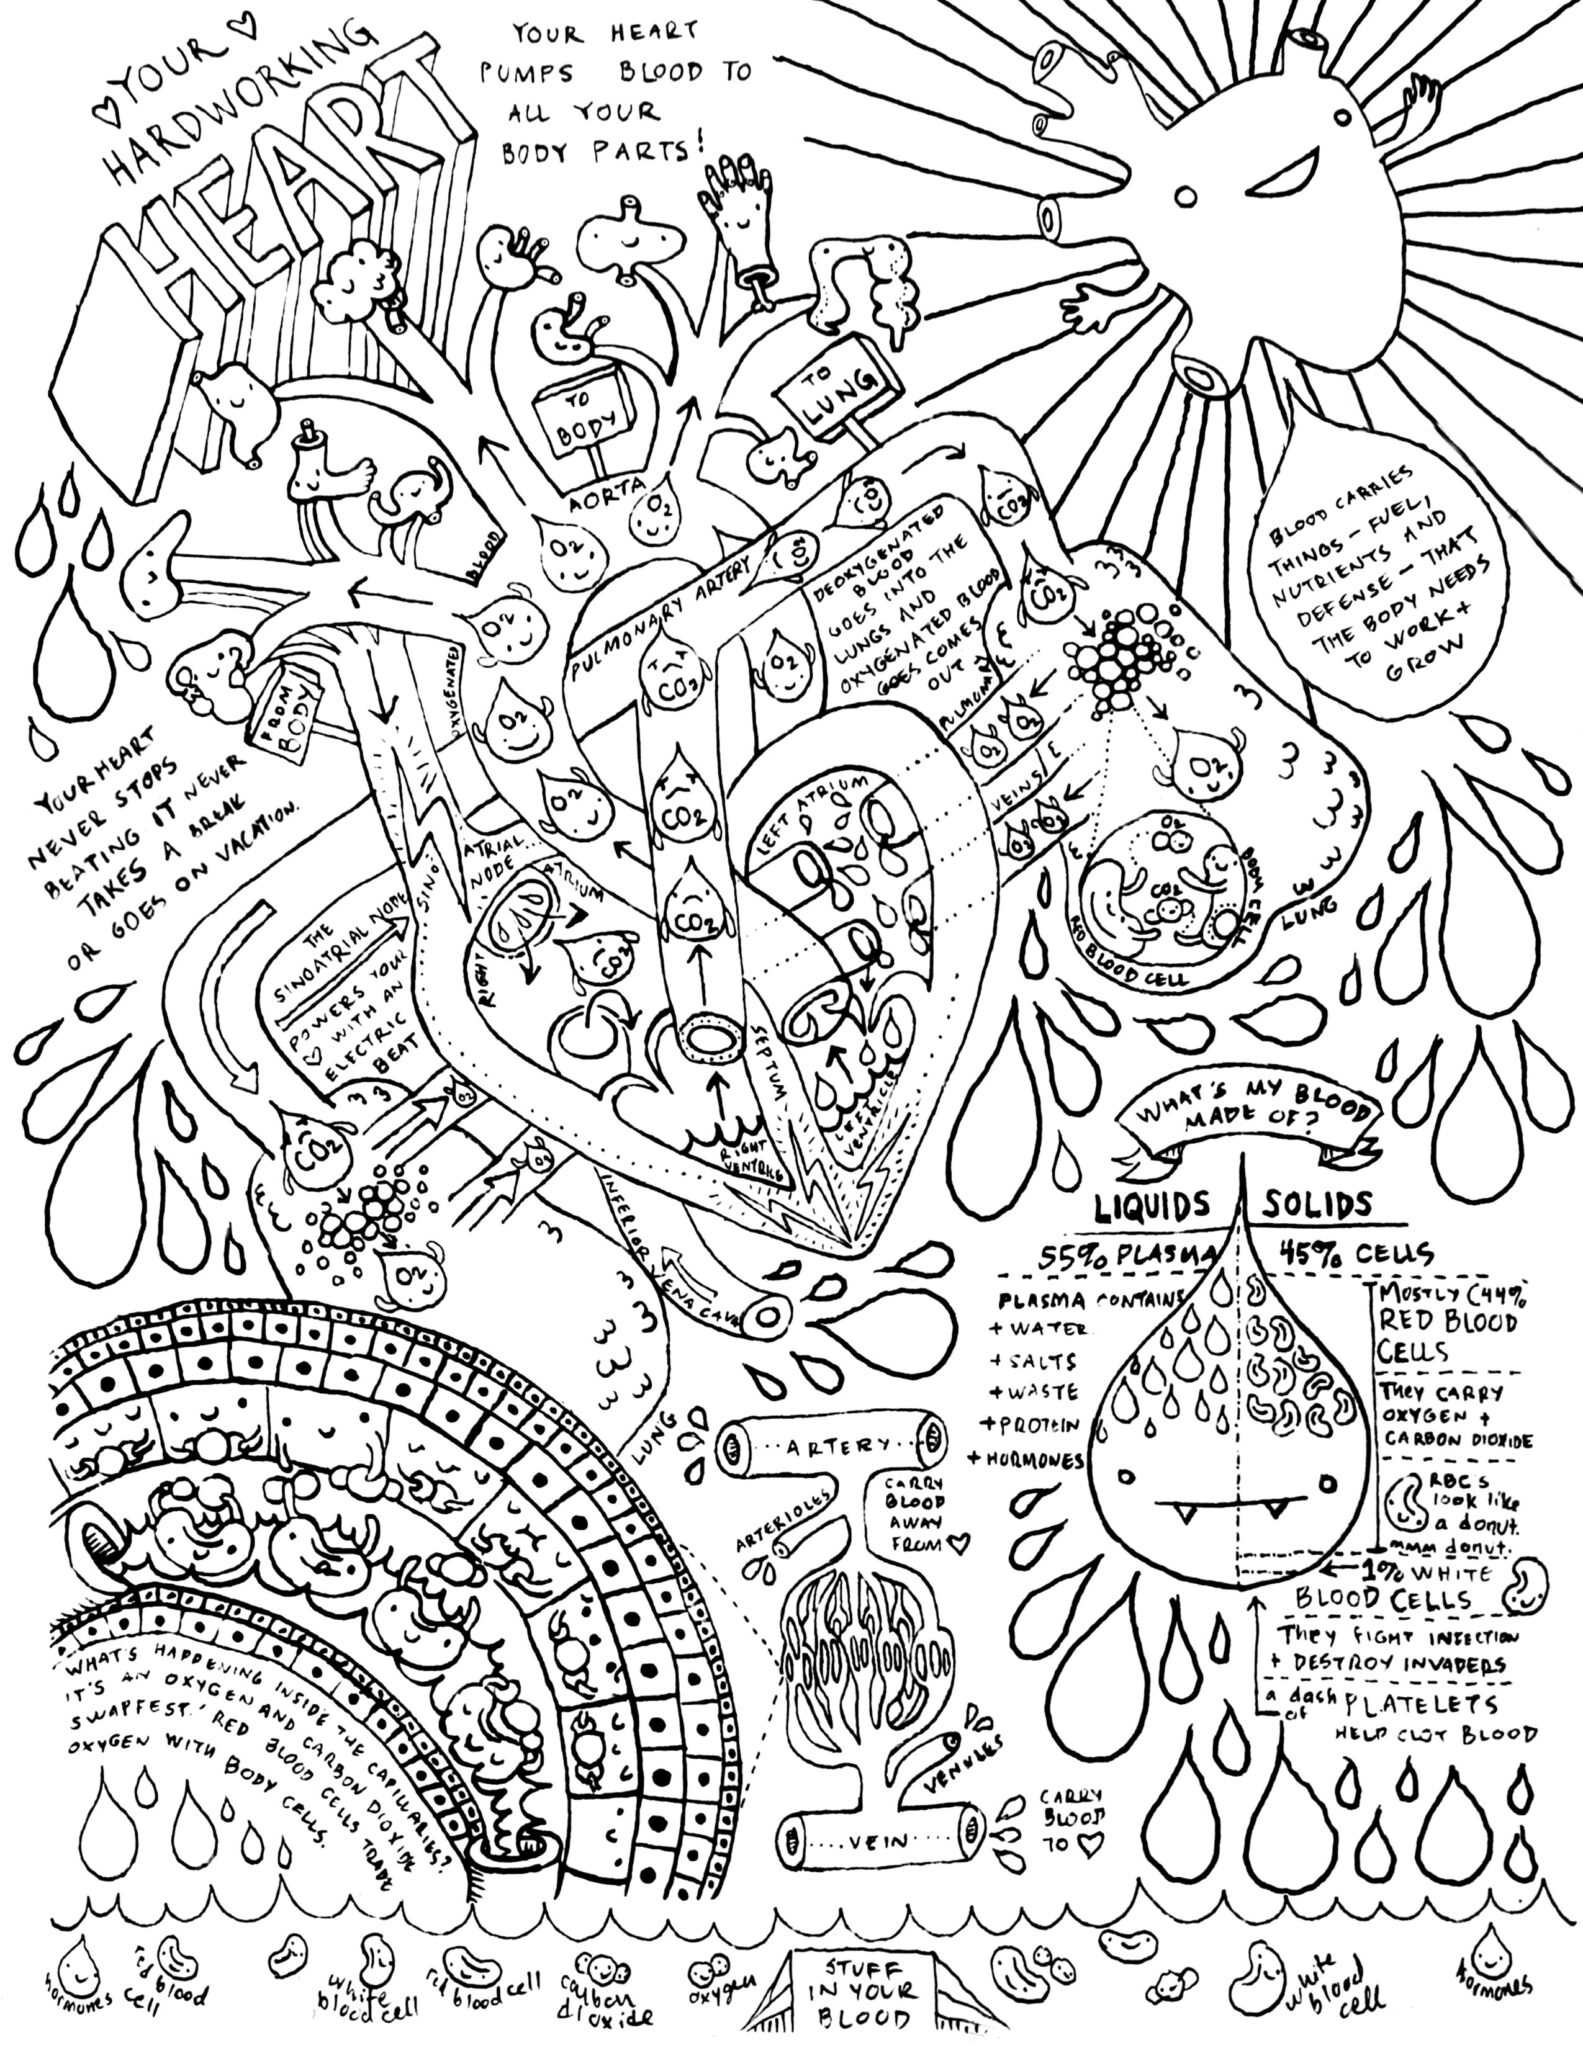 YOUR
HARDWORKING
HEART
YOUR HEART
PUMPS BLOOD TO
ALL YOUR
BODY PARTS!
TO
BODY
TO
LUNG
AORTA
O2
O2
CO2
CO2
BLOOD
OXYGENATED
O2
O2
O2
PULMONARY ARTERY
CO2
CO2
O2
CO2
CO2
CO2
DEOXYGENATED
BLOOD
GOES INTO THE
LUNGS AND
OXYGENATED BLOOD
GOES COMES
OUT
PULMONARY
VEINS
O2
O2
O2
O2
O2
BLOOD CARRIES
THINGS - FUEL,
NUTRIENTS AND
DEFENSE - THAT
THE BODY NEEDS
TO WORK +
GROW
FROM
BODY
YOUR HEART
NEVER STOPS
BEATING IT NEVER
TAKES A BREAK
OR GOES ON VACATION.
THE
SINOATRIAL NODE
POWERS YOUR
♡ WITH AN
ELECTRIC
BEAT
SINO
ATRIAL
NODE
RIGHT
ATRIUM
CO2
LEFT ATRIUM
SEPTUM
RIGHT
VENTRICLE
LEFT
VENTRICLE
O2
CO2
BODY CELL
RED BLOOD CELL
LUNG
CO2
O2
O2
O2
INFERIOR VENA CAVA
LUNG
WHAT'S MY BLOOD
MADE OF?
LIQUIDS
SOLIDS
55% PLASMA
45% CELLS
PLASMA CONTAINS
+ WATER
+ SALTS
+ WASTE
+ PROTEIN
+ HORMONES
MOSTLY (44%
RED BLOOD
CELLS
They CARRY
OXYGEN +
CARBON DIOXIDE
RBC's
look like
a donut.
mmm donut.
1% WHITE
BLOOD CELLS
They FIGHT INFECTION
+ DESTROY INVADERS
a dash
of
PLATELETS
HELP CLOT BLOOD
ARTERY
ARTERIOLES
CARRY
BLOOD
AWAY
FROM ♡
VENULES
VEIN
CARRY
BLOOD
TO ♡
WHAT'S HAPPENING INSIDE THE CAPILLARIES?
IT'S AN OXYGEN AND CARBON DIOXIDE
SWAPFEST! RED BLOOD CELLS TRADE
OXYGEN WITH BODY CELLS.
hormones
red blood
cell
white
blood cell
red blood cell
carbon
dioxide
oxygen
STUFF
IN YOUR
BLOOD
white
blood
cell
hormones